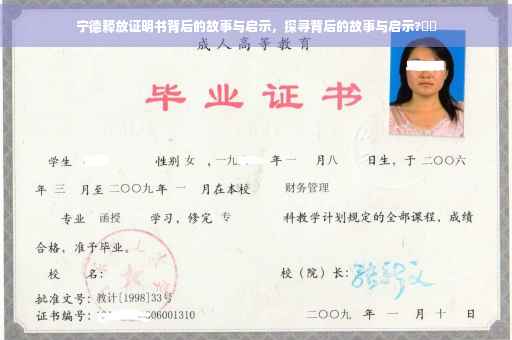 宁德释放证明书背后的故事与启示，探寻背后的故事与启示?
成人高等教育
毕业证书
学生 性别 女 ，一九 年 一 月八 日生，于 二〇〇六
年 三 月至 二〇〇九 年 一 月在本校 财务管理
专业 函授 学习，修完 专 科教学计划规定的全部课程，成绩
合格，准予毕业。
校 名： 校（院）长：
批准文号：教计[1998]33号
证书编号： 06001310 二〇〇九 年 一 月 十 日